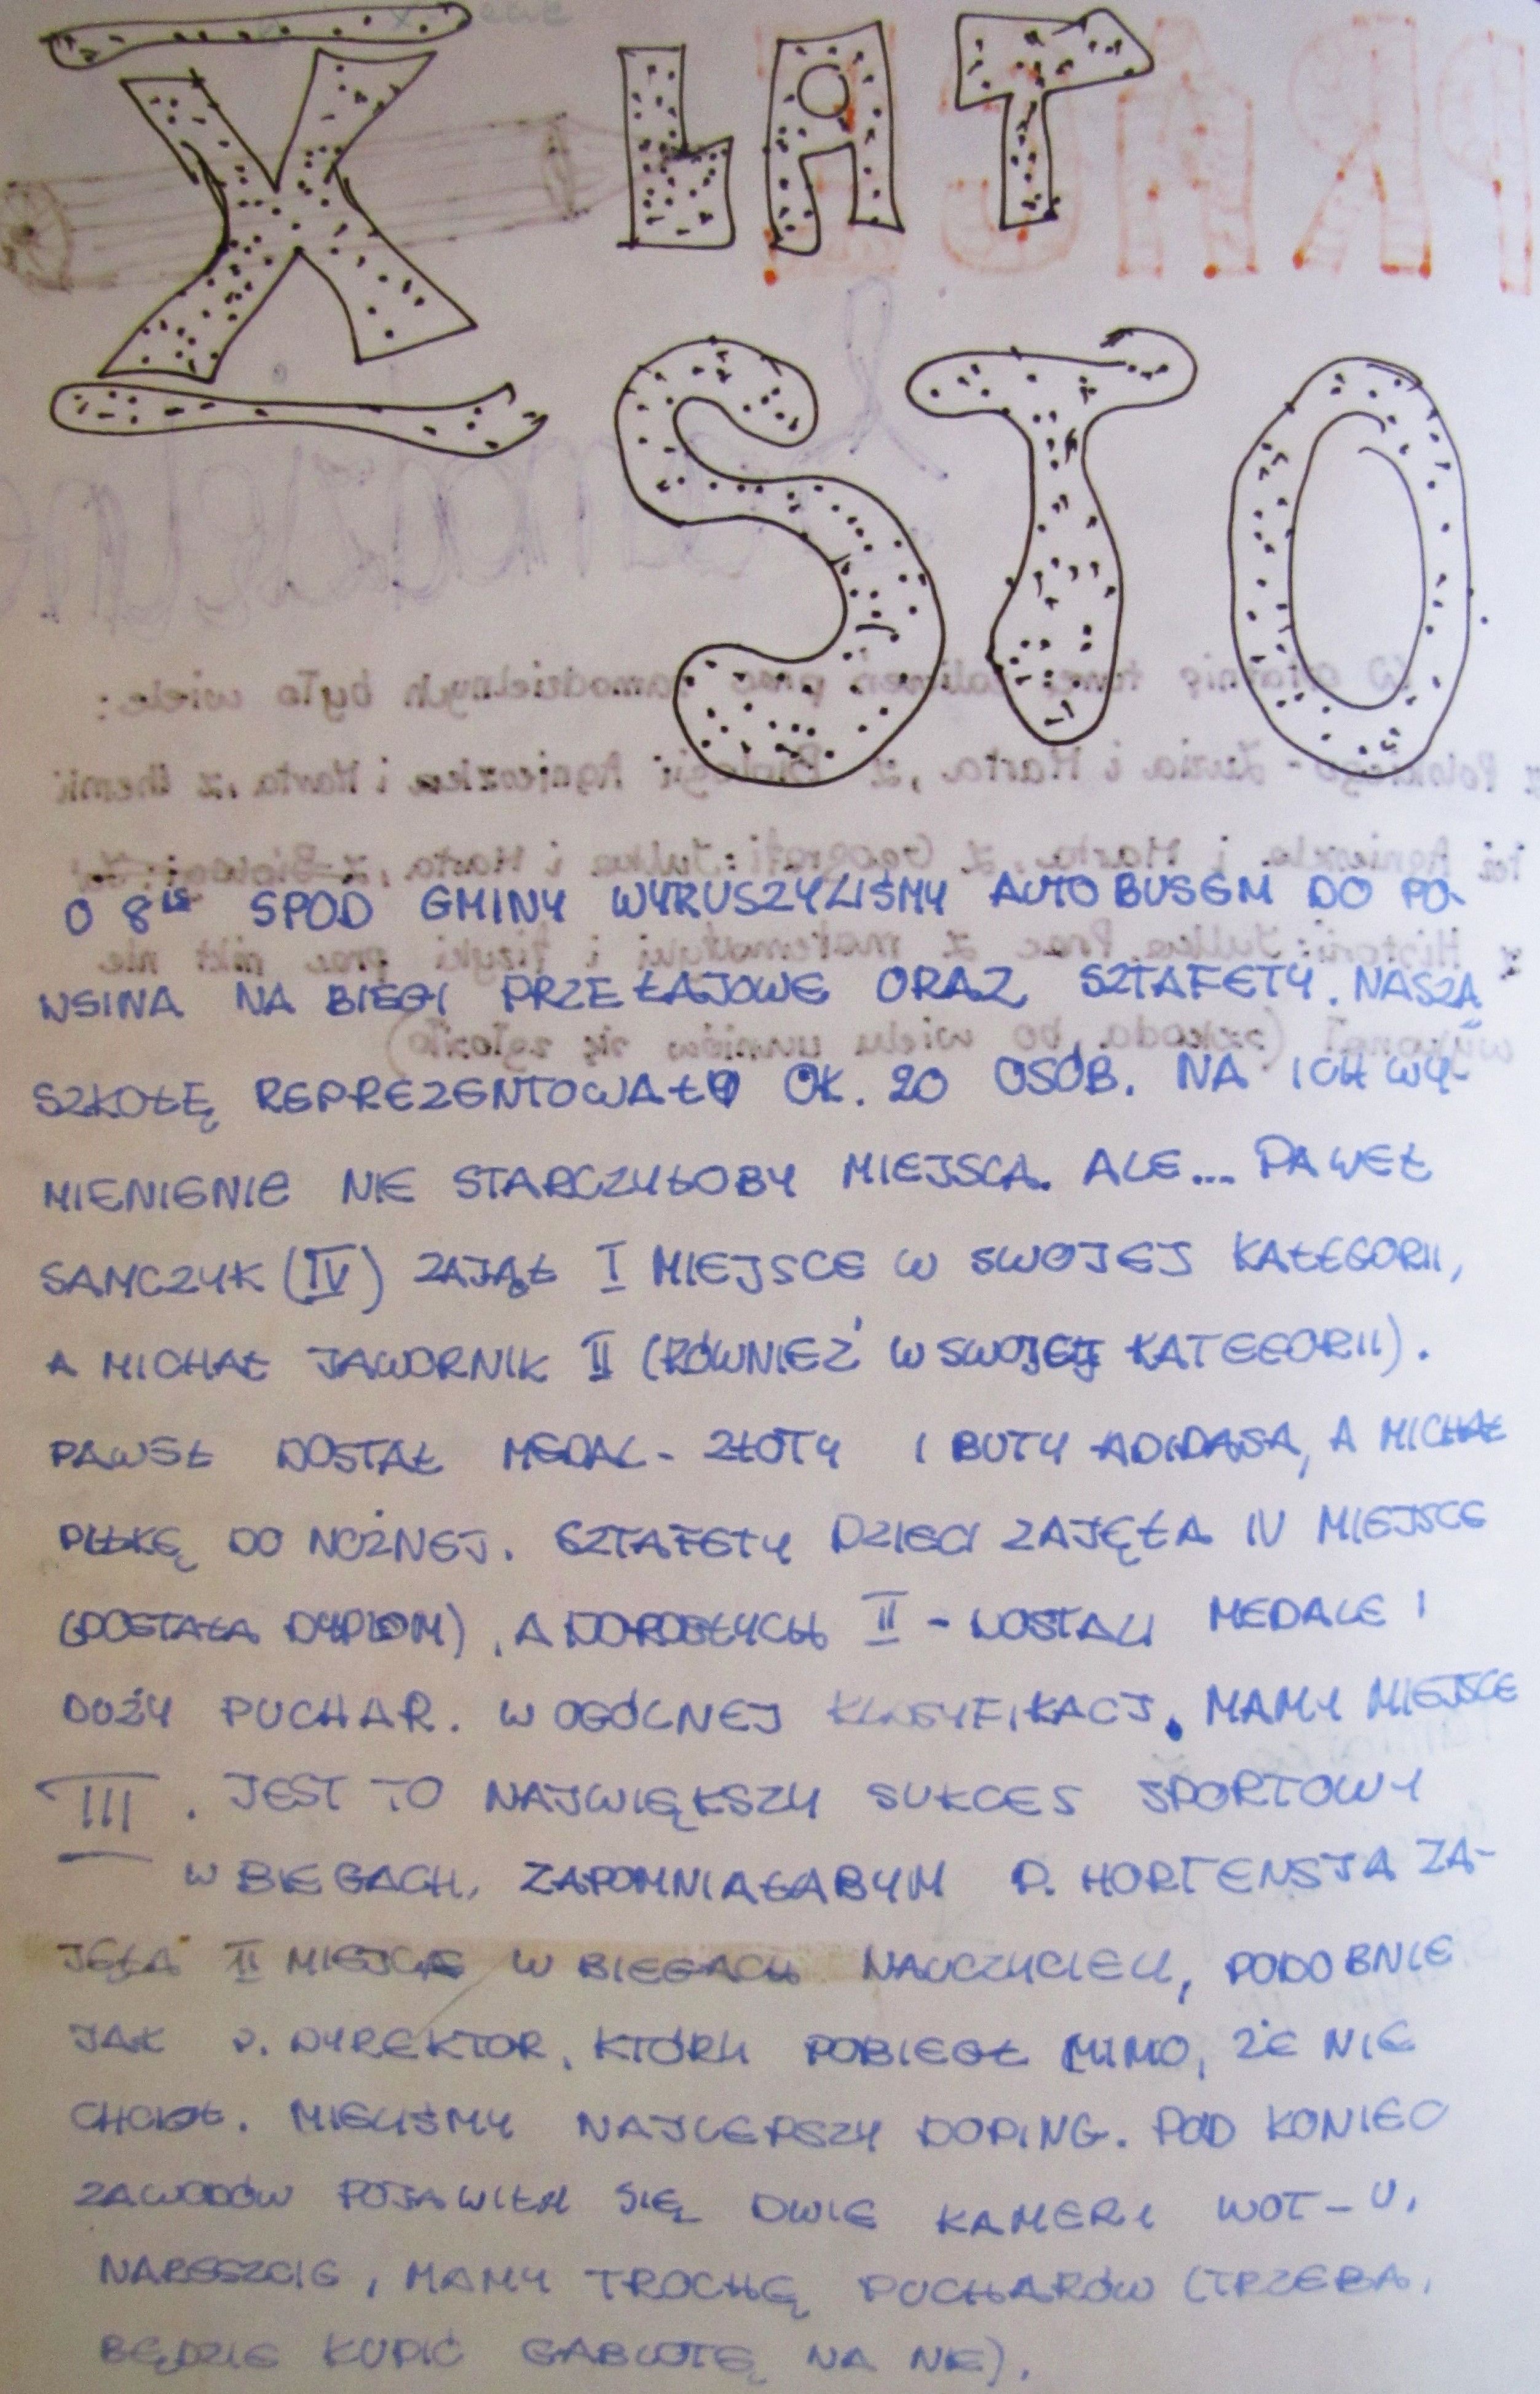 X LAT
STO
O 8¹⁵ SPOD GMINY WYRUSZYLIŚMY AUTOBUSEM DO PO-
WSINA NA BIEGI PRZEŁAJOWE ORAZ SZTAFETY. NASZĄ
SZKOŁĘ REPREZENTOWAŁO OK. 20 OSÓB. NA ICH WY-
MIENIENIE NIE STARCZYŁOBY MIEJSCA. ALE... PAWEŁ
SAMCZYK (IV) ZAJĄŁ I MIEJSCE W SWOJEJ KATEGORII,
A MICHAŁ JAWORNIK II (RÓWNIEŻ W SWOJEJ KATEGORII).
PAWEŁ DOSTAŁ MEDAL - ZŁOTY I BUTY ADIDASA, A MICHAŁ
PIŁKĘ DO NOŻNEJ. SZTAFETY DZIECI ZAJĘŁA IV MIEJSCE
(DOSTAŁA DYPLOM), A DOROSŁYCH II - DOSTALI MEDALE I
DUŻY PUCHAR. W OGÓLNEJ KLASYFIKACJI. MAMY MIEJSCE
III. JEST TO NAJWIĘKSZY SUKCES SPORTOWY
W BIEGACH, ZAPOMNIAŁABYM P. HORTENSJA ZA-
JĘŁA II MIEJSCE W BIEGACH NAUCZYCIELI, PODOBNIE
JAK P. DYREKTOR, KTÓRY POBIEGŁ MIMO, ŻE NIE
CHCIAŁ. MIELIŚMY NAJLEPSZY DOPING. POD KONIEC
ZAWODÓW POJAWIŁY SIĘ DWIE KAMERY WOT-U.
NARESZCIE, MAMY TROCHĘ PUCHARÓW (TRZEBA,
BĘDZIE KUPIĆ GABLOTĘ NA NIE).